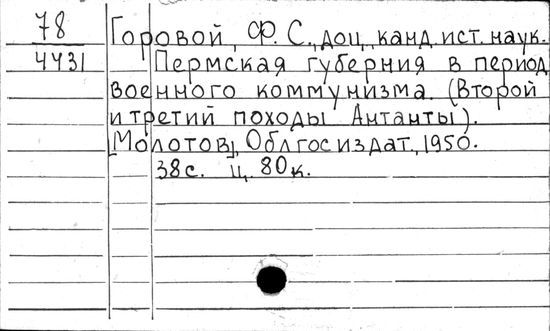 78 Горовой, Ф. С., доц., канд. ист. наук.
4431 Пермская губерния в период
военного коммунизма. (Второй
и третий походы Антанты).
[Молотов], Облгосиздат, 1950.
38с. ц. 80к.